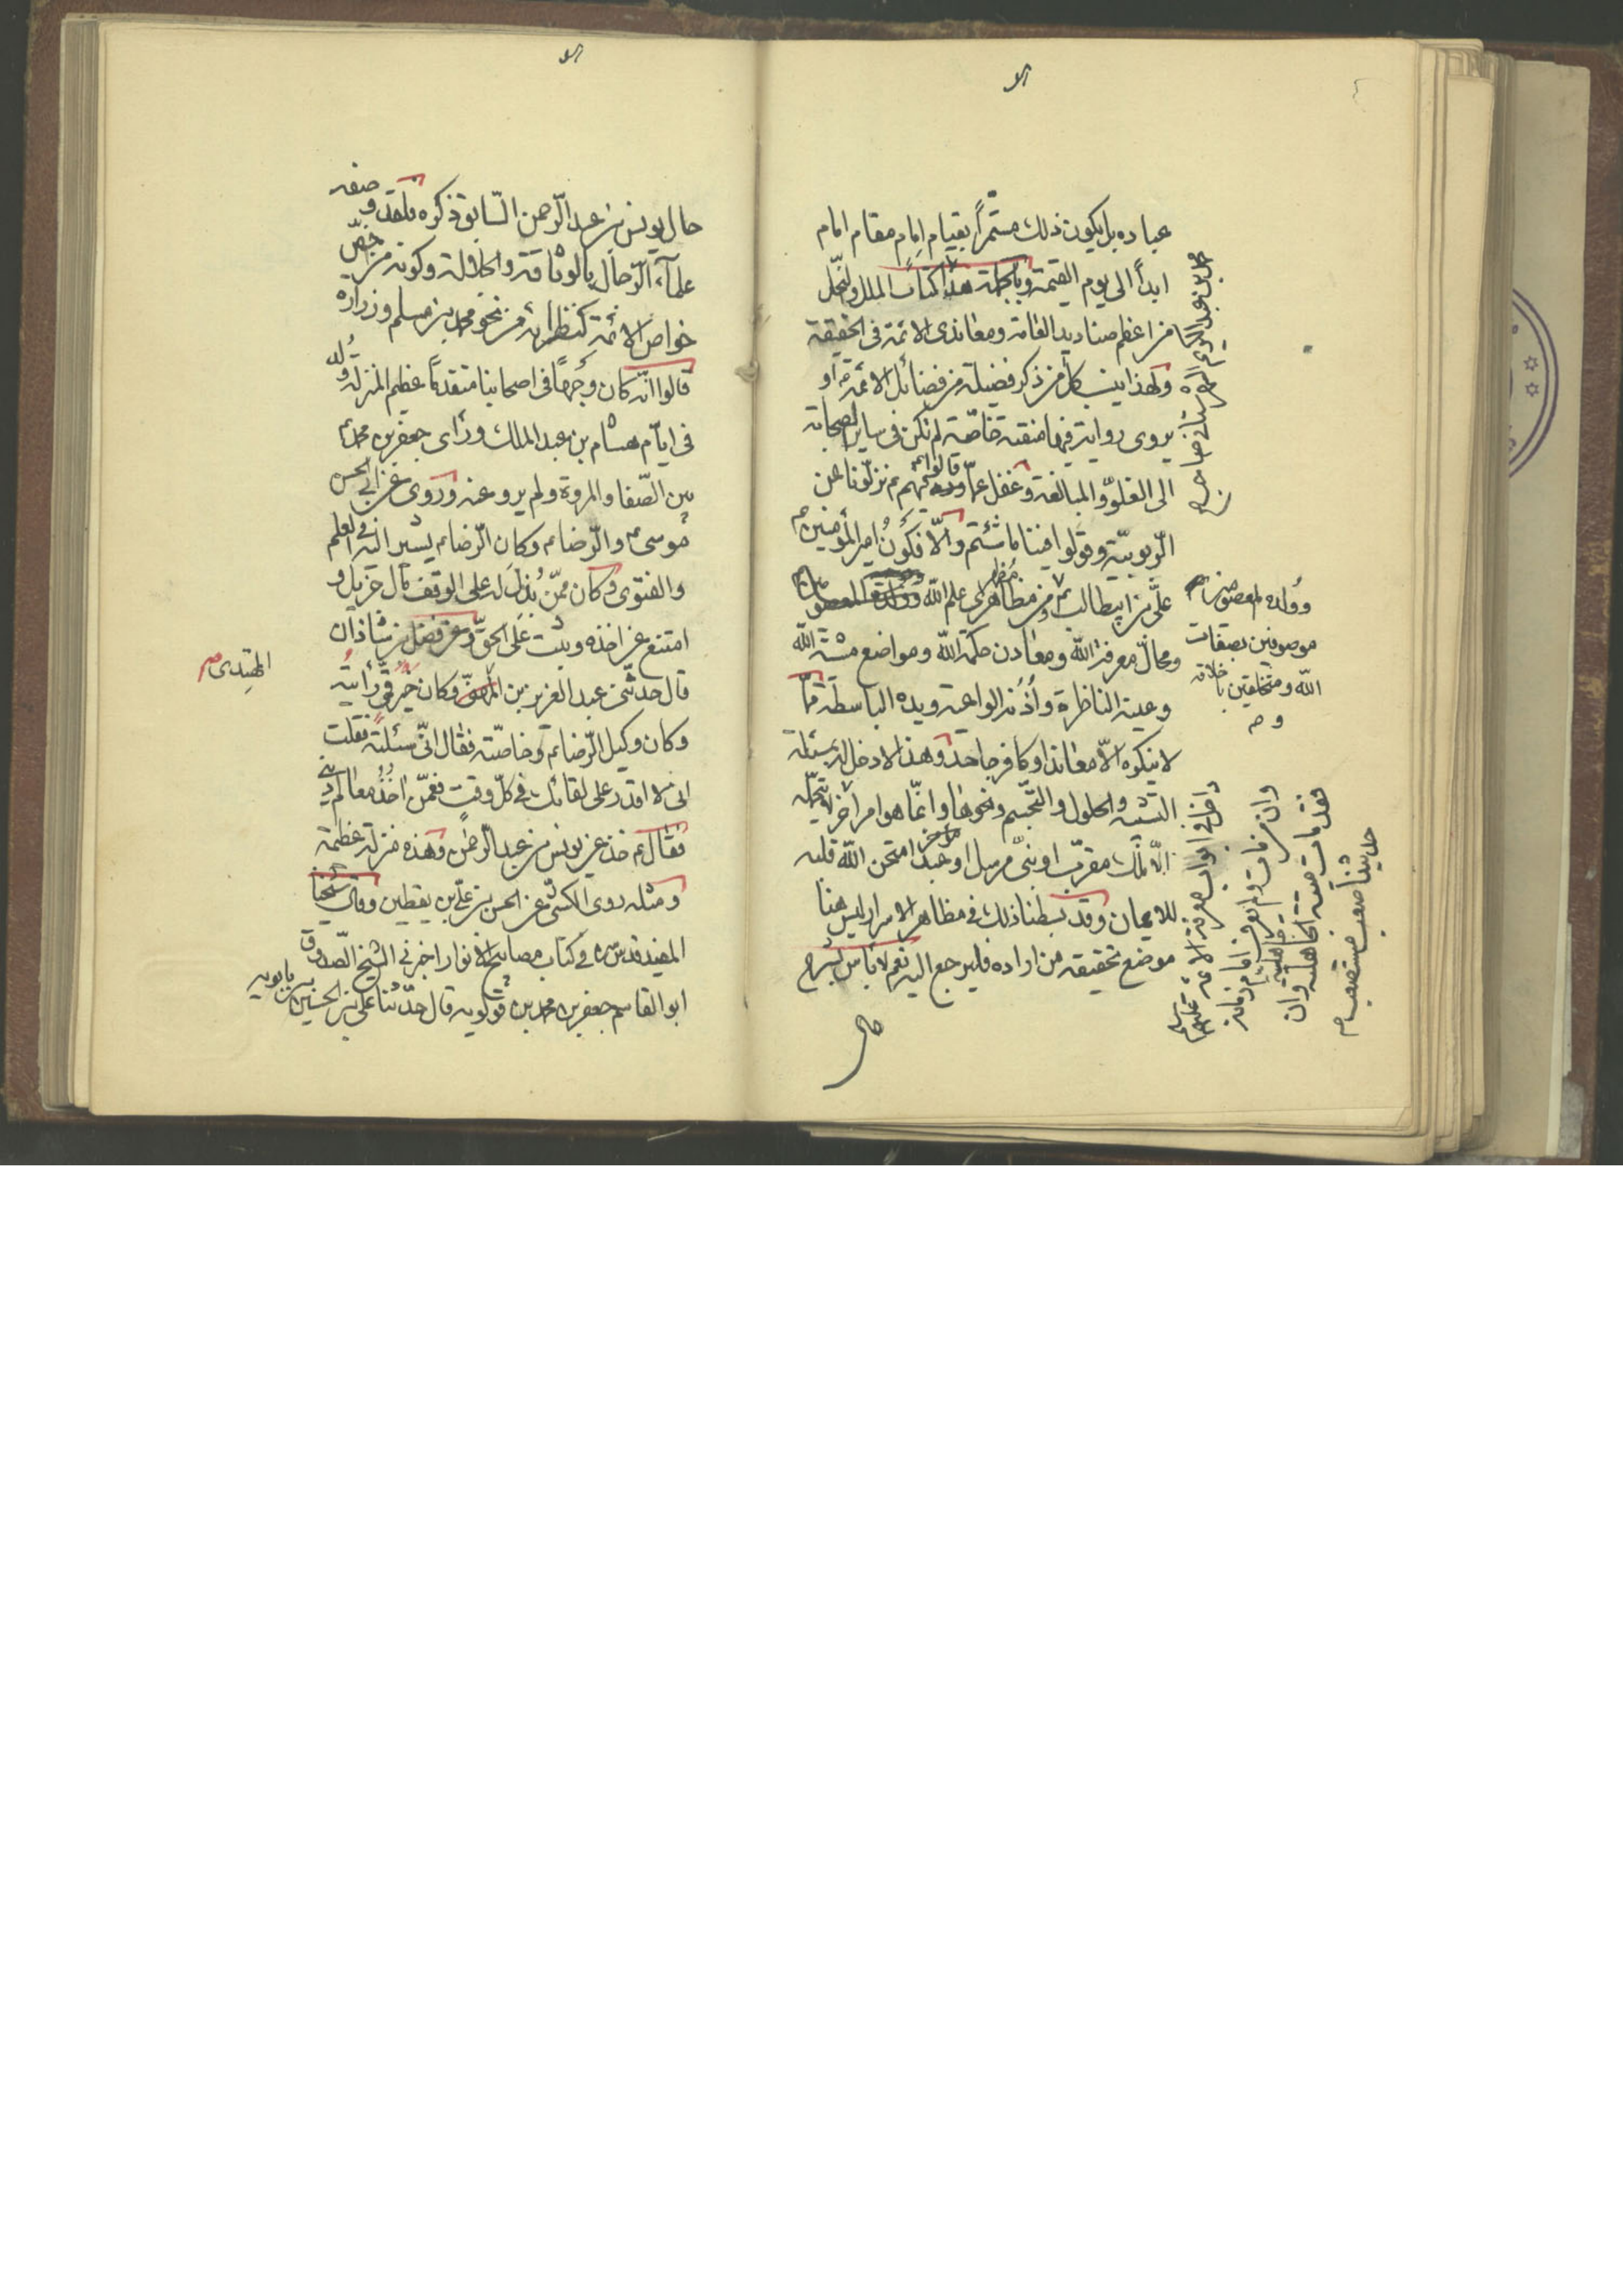 عباده بل يكون ذلك مستمرّاً بقيام امام مقام امام
ابداً الى يوم القيمة وبالجملة هذا كتاب الملل والنحل
من اعظم صناديد العامة ومعاندى الائمة فى الحقيقة
ولهذا ينسب كل من ذكر فضيلة من فضائل الائمة او
يروى رواية فيها منقبة خاصّة لم تكن فى ساير الصحابة
الى الغلوّ والمبالغة وغفل عمّا قالوا نزّلونا عن
الرّبوبيّة وقولوا فينا ما شئتم والّا فكون امير المؤمنين
علىّ بن ابيطالب من مظاهر علم الله
ومحالّ معرفة الله ومعادن حكمة الله ومواضع مشية الله
وعينه الناظرة واُذُنه الواعية ويده الباسطة ممّا
لا ينكره الّا معاند او كافر جاحد وهذا لا دخل له بمسئلة
التشبيه والحلول والتجسّم ونحوها وانّما هو امر اخر لا يتحمّله
الّا ملك مقرّب او نبىّ مرسل او عبد امتحن الله قلبه
للايمان وقد بسطنا ذلك فى مظاهر الاسرار ليس هنا
موضع تحقيقه من اراده فليرجع اليه نعم لا باس بشرح
حال
وولده المعصومين
موصوفين بصفات
الله ومتخلقين باخلاقه
داخل فى ابواب معرفة الائمة عليهم السلام
وان من مات ولم يعرف امام زمانه
فقد مات ميتة الجاهلية وان
حديثنا صعب مستصعب
حال يونس بن عبد الرّحمن السّابق ذكره فلقد وصفه
علماء الرّجال بالوثاقة والجلالة وكونه من اخصّ
خواص الائمة كنظرائه من نحو محمد بن مسلم وزراره
قالوا انّه كان وجهاً فى اصحابنا متقدّماً عظيم المنزلة وُلد
فى ايّام هشام بن عبد الملك وراى جعفر بن محمد
بين الصّفا والمروة ولم يرو عنه وروى عن ابى الحسن
موسى والرّضا وكان الرّضا يشير اليه فى العلم
والفتوى وكان ممّن بُذِلَ له على الوقف مال جزيل و
امتنع من اخذه وثبت على الحقّ وعن فضل بن شاذان
قال حدثنى عبد العزيز بن المهتدى وكان خير قمّىّ رأيته
وكان وكيل الرّضا وخاصّته فقال انّى سئلته فقلت
انى لا اقدر على لقائك فى كلّ وقت فعمّن اخذ معالم دينى
فقال خذ عن يونس بن عبد الرّحمن وهذه منزلة عظيمة
ومثله روى الكشّى عن الحسن بن علىّ بن يقطين وقال شيخنا
المفيد قدس سره فى كتاب مصابيح الانوار اخبرنى الشيخ الصّدوق
ابو القاسم جعفر بن محمد بن قولويه قال حدّثنا على بن الحسين بن بابويه
المهتدى